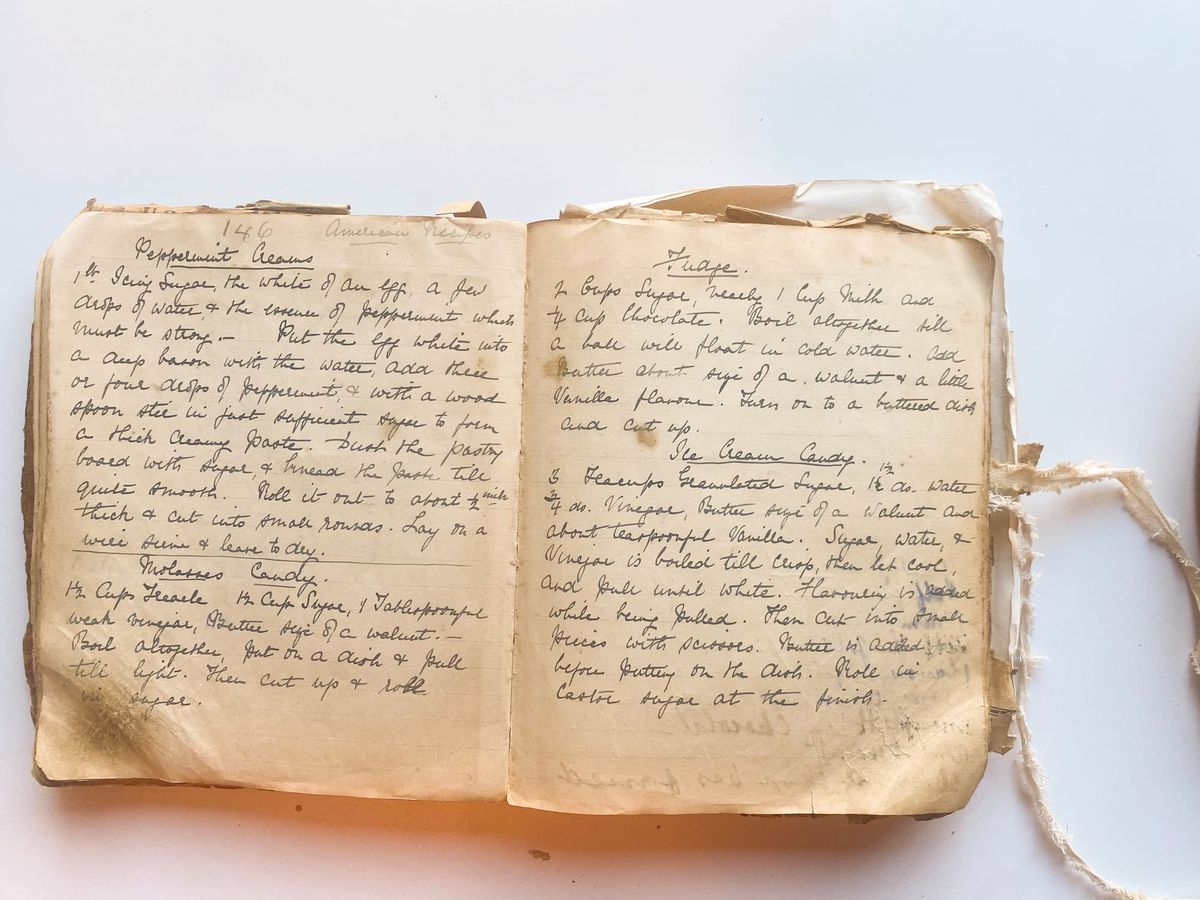 146 American Recipes
Peppermint Creams
1 lb Icing Sugar, the white of an egg, a few
drops of water, & the essence of Peppermint which
must be strong. — Put the egg white into
a deep bason with the water, add three
or four drops of peppermint, & with a wood
spoon stir in just sufficient sugar to form
a thick creamy paste. Dust the pastry
board with sugar, & knead the paste till
quite smooth. Roll it out to about ½ inch
thick & cut into small rounds. Lay on a
wire sieve & leave to dry.
Molasses Candy.
1½ Cups Treacle 1½ Cup Sugar, 1 Tablespoonful
weak vinegar, Butter size of a walnut. —
Boil altogether, put on a dish & pull
till light. Then cut up & roll
in sugar.
Fudge.
2 Cups Sugar, nearly 1 Cup Milk and
¼ cup Chocolate. Boil altogether till
a ball will float in cold water. Add
Butter about size of a walnut & a little
Vanilla flavour. Turn on to a buttered dish
and cut up.
Ice Cream Candy.
3 Teacups Granulated Sugar, 1½ ds. Water
¾ ds. Vinegar, Butter size of a walnut and
about teaspoonful Vanilla. Sugar, water, &
Vinegar is boiled till crisp, then let cool,
and pull until white. Flavouring is added
while being pulled. Then cut into small
pieces with scissors. Butter is added
before putting on the dish. Roll in
Castor sugar at the finish.